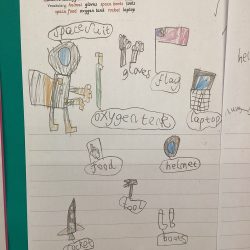 gloves space boots tools
space food oxygen tank rocket laptop
spacesuit
gloves
flag
oxygen tank
laptop
food
helmet
rocket
boots